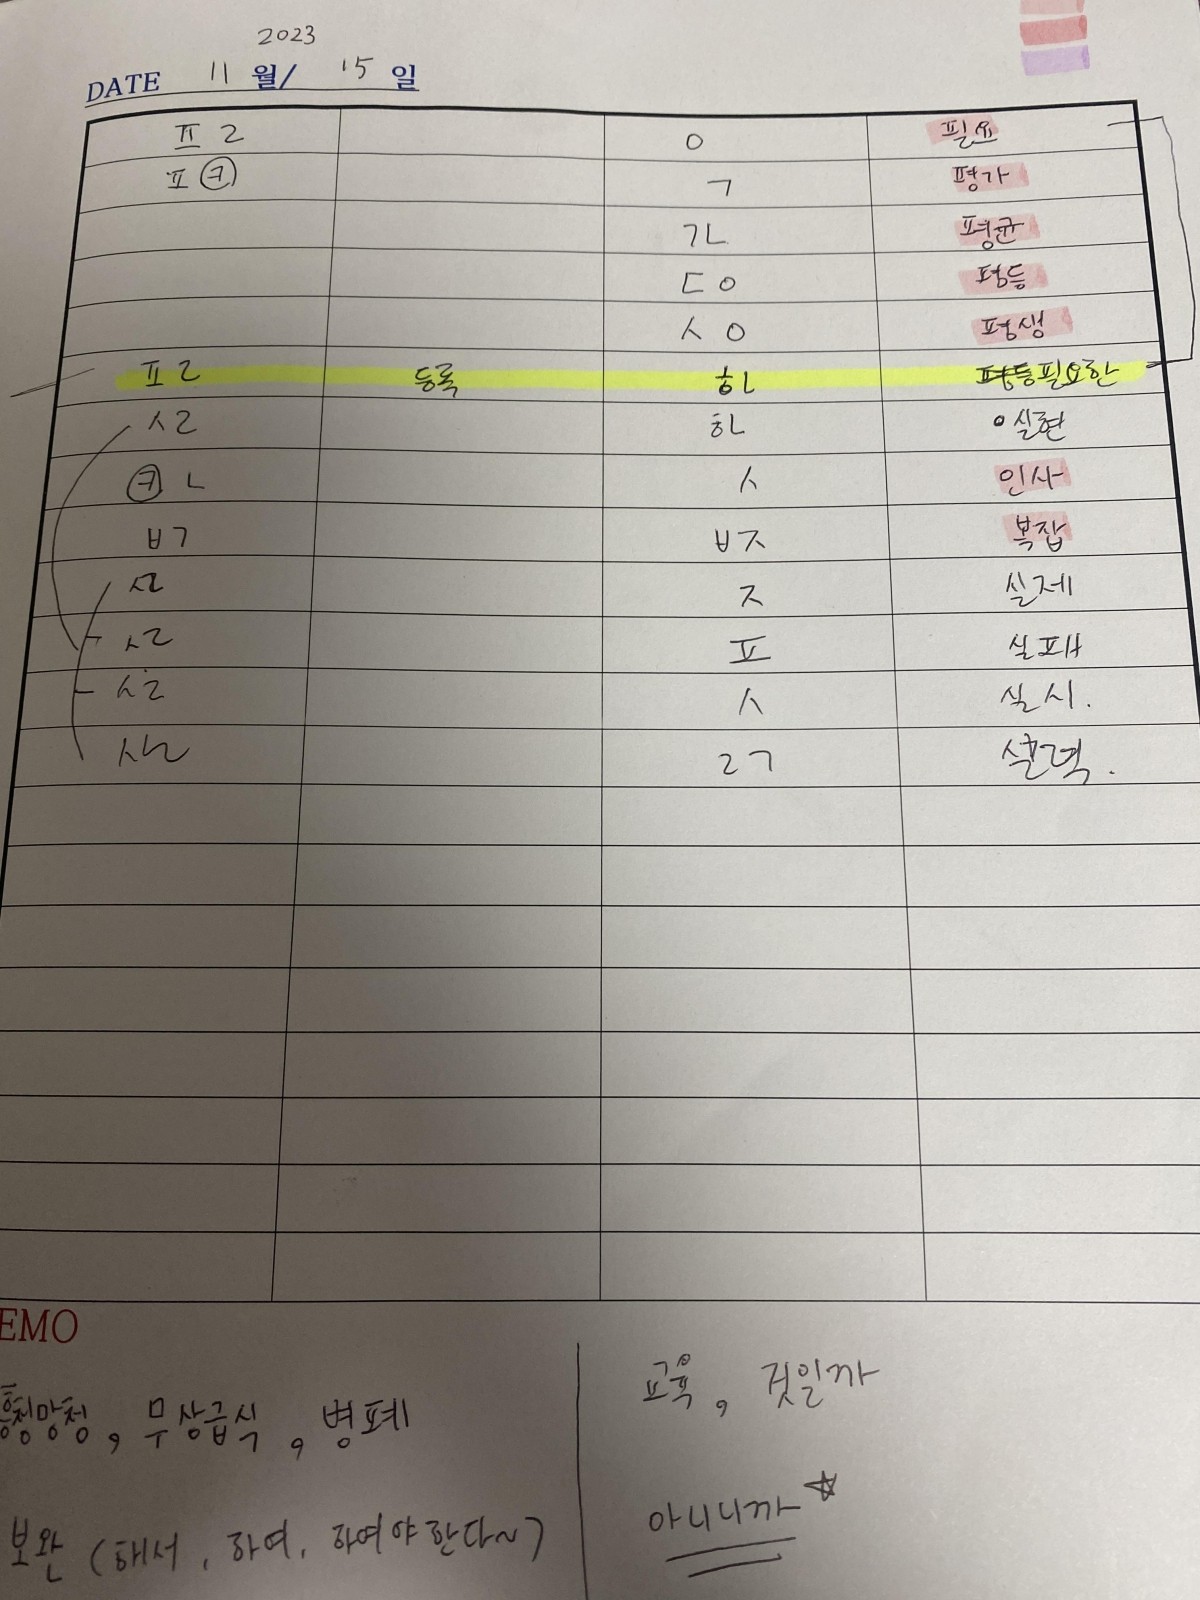 2023
DATE 11 월/ 15 일
ㅍㄹ ㅇ 필요
ㅍㅋ ㄱ 평가
ㄱㄴ 평균
ㄷㅇ 평등
ㅅㅇ 평생
ㅍㄹ 등록 ㅎㄴ 필요한
ㅅㄹ ㅎㄴ 실현
ㅋㄴ ㅅ 인사
ㅂㄱ ㅂㅈ 복잡
ㅅㄹ ㅈ 실제
ㅅㄹ ㅍ 실패
ㅅㄹ ㅅ 실시.
ㅅㄹ ㄹㄱ 실력.
EMO
흥청망청, 무상급식, 병폐
교육, 것일까
보완 (해서, 하여, 하여야 한다~)
아니니까 ☆